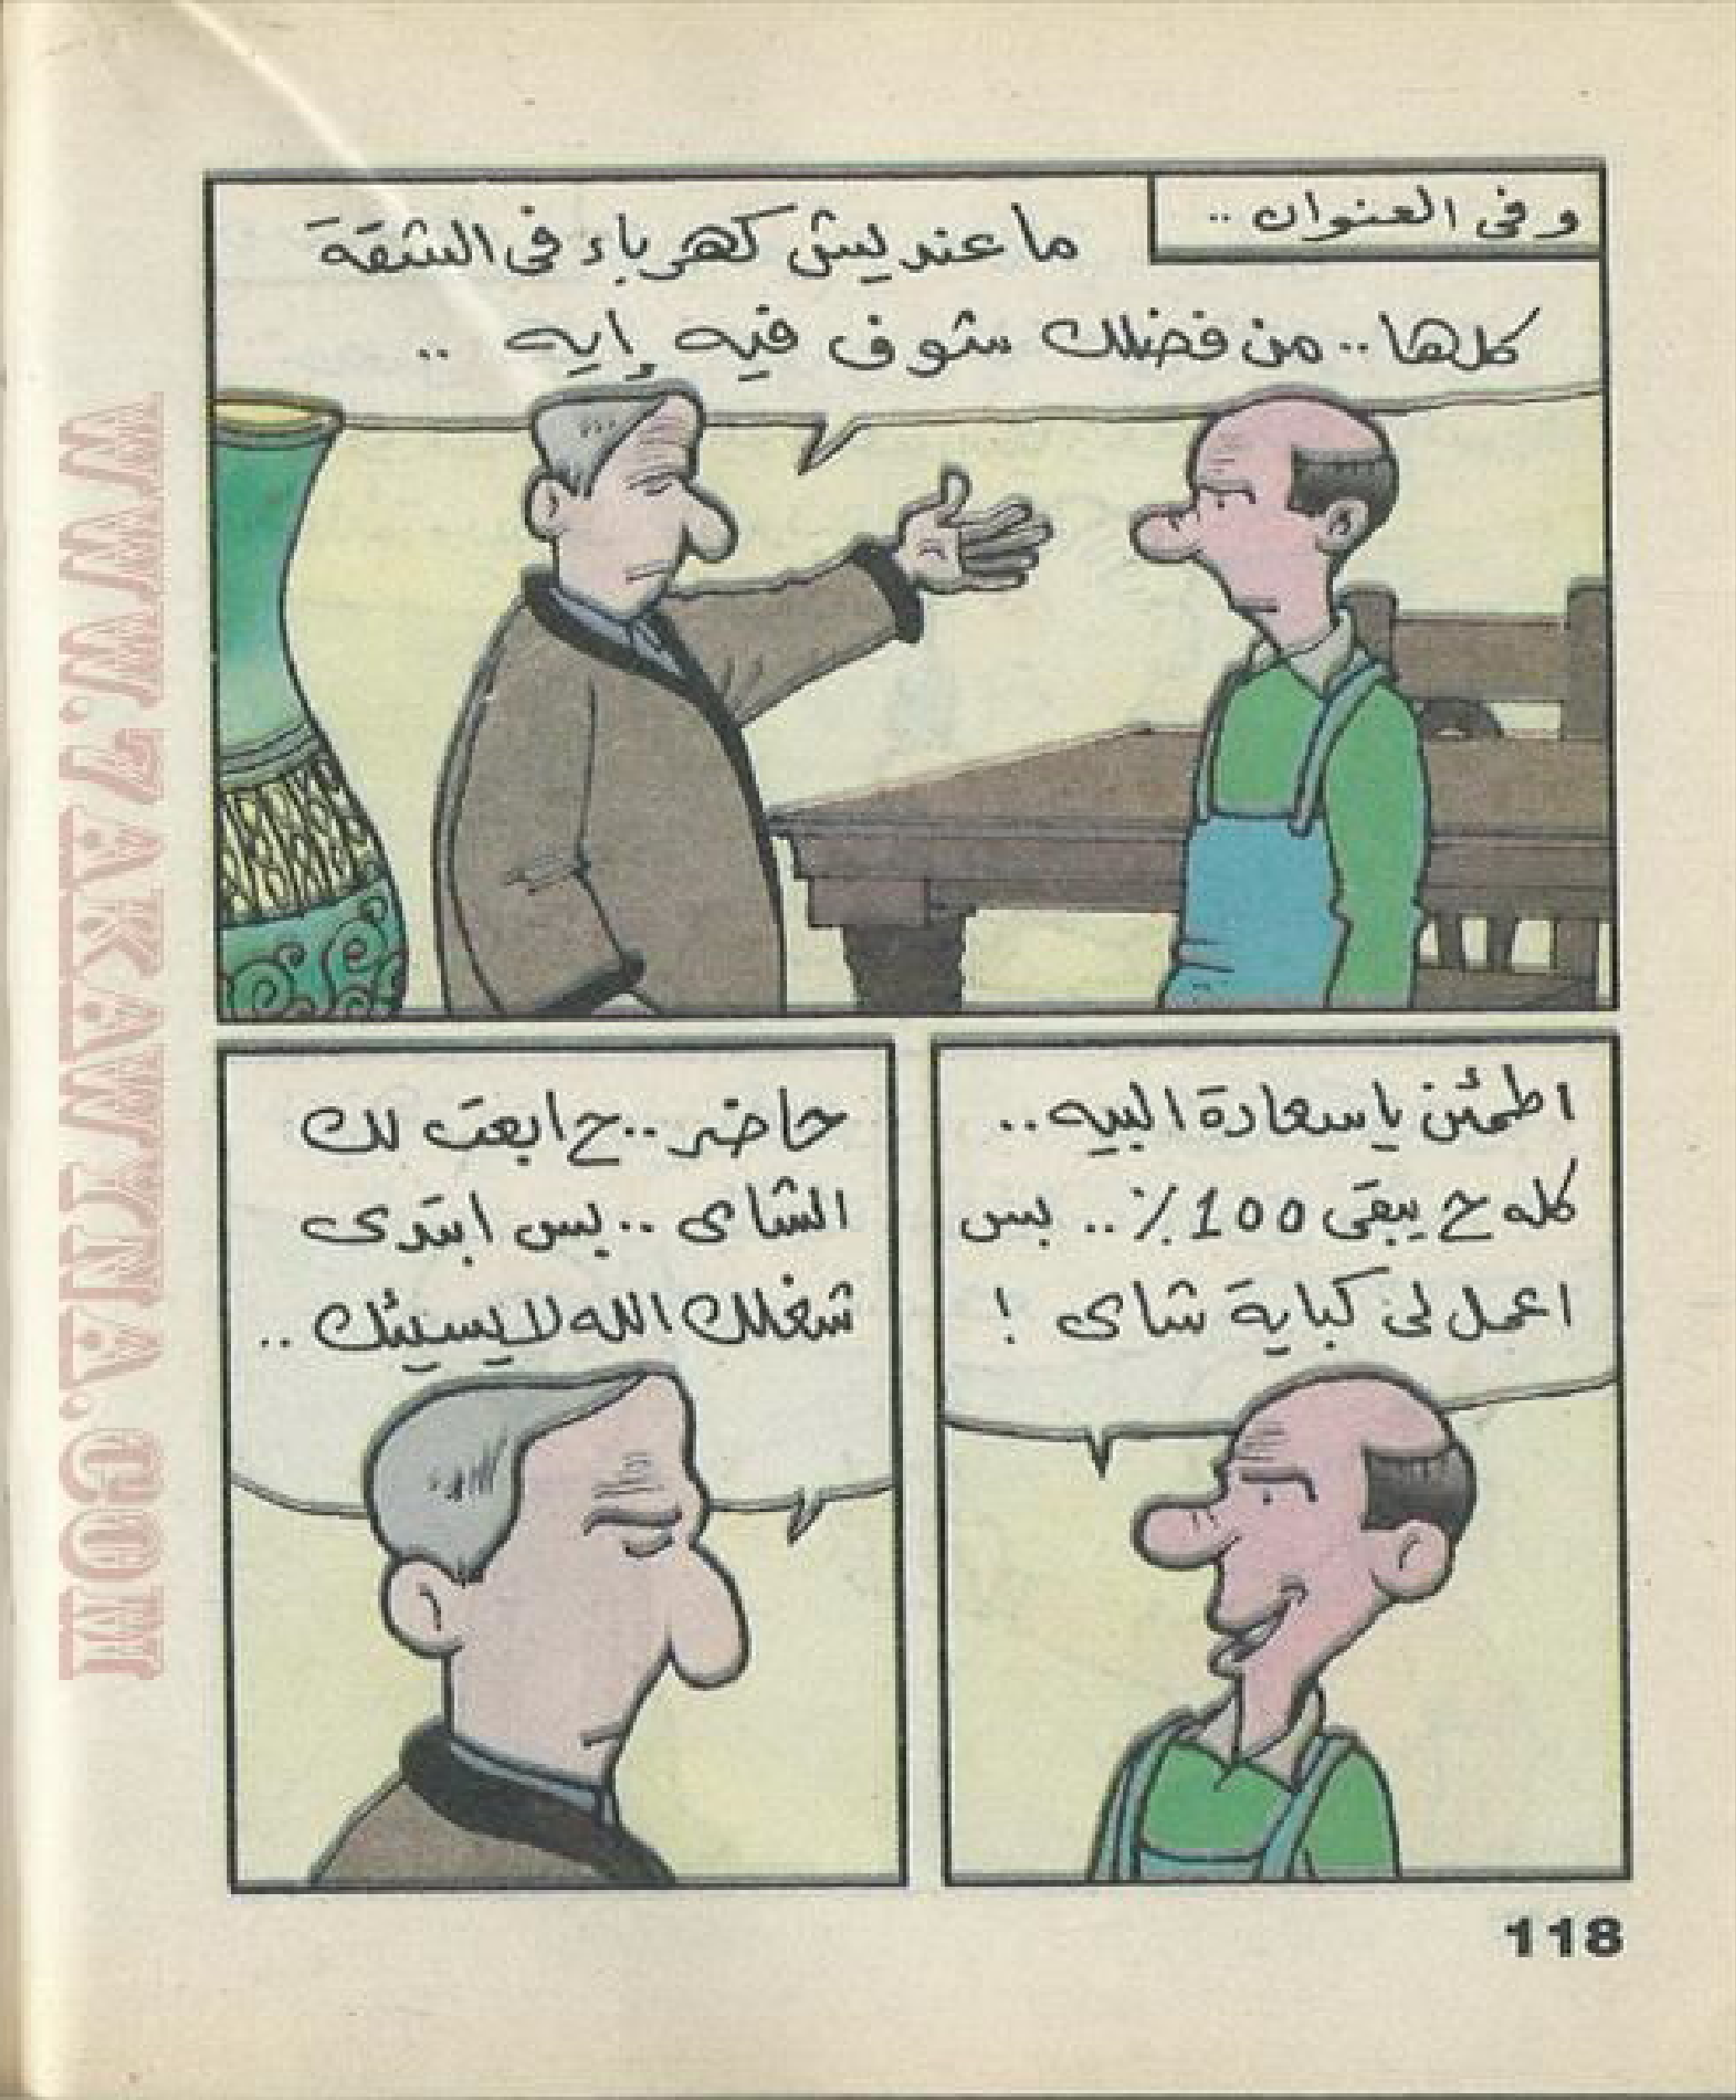 وفى العنوان ..
ما عنديش كهرباء فى الشقة
كلها .. من فضلك شوف فيه إيه ..
اطمئن ياسعادة البيه ..
كله ح يبقى 100٪ .. بس
اعمل لى كباية شاى !
حاضر .. ح ابعت لك
الشاى .. بس ابتدى
شغلك الله لا يسيئك ..
118
WWW.7AKAWYNA.COM